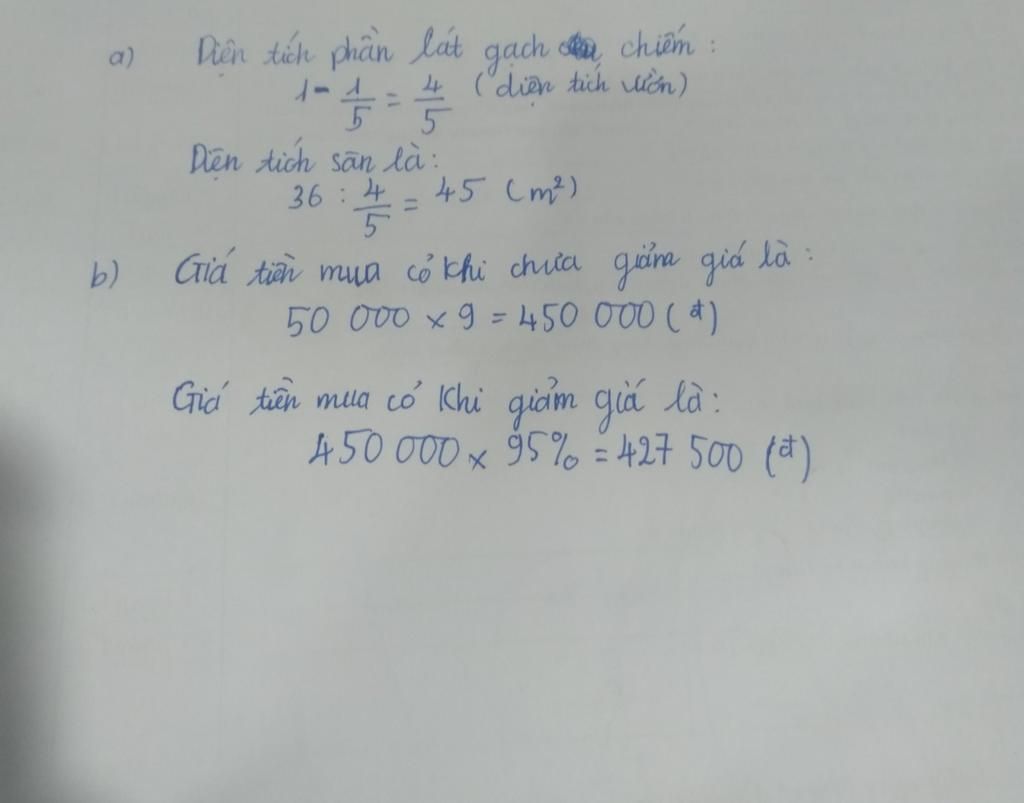 a) Diện tích phần lát gạch chiếm :
1 - 1/5 = 4/5 (diện tích vườn)
Diện tích sân là:
36 : 4/5 = 45 (m²)
b) Giá tiền mua cỏ khi chưa giảm giá là :
50 000 × 9 = 450 000 (đ)
Giá tiền mua cỏ khi giảm giá là:
450 000 × 95% = 427 500 (đ)